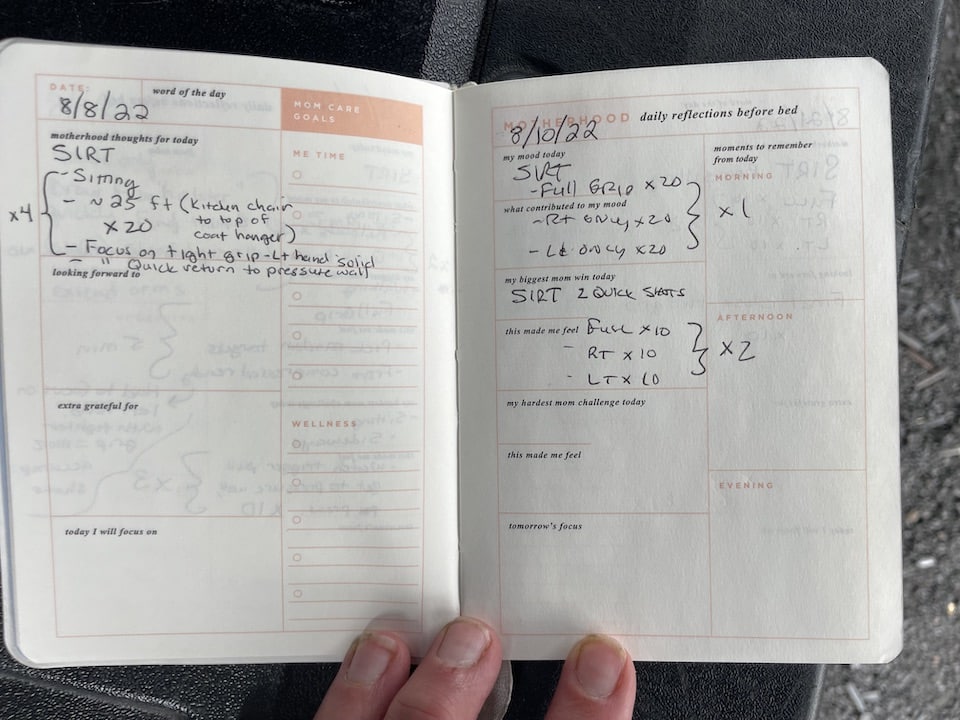 DATE:
word of the day
8/8/22
MOM CARE
GOALS
motherhood thoughts for today
SIRT
ME TIME
- Sitting
- ~ 25 ft (Kitchen chair
to top of
coat hanger)
x 20
x4
- Focus on tight grip - Lt hand solid
- " Quick return to pressure wall
looking forward to
extra grateful for
WELLNESS
today I will focus on
MOTHERHOOD daily reflections before bed
8/10/22
my mood today
SIRT
- Full Grip x 20
what contributed to my mood
- Rt only x 20
- Lt only x 20
x1
moments to remember
from today
MORNING
my biggest mom win today
SIRT 2 Quick Shots
this made me feel
Full x 10
- RT x 10
- LT x 10
x2
AFTERNOON
my hardest mom challenge today
this made me feel
EVENING
tomorrow's focus